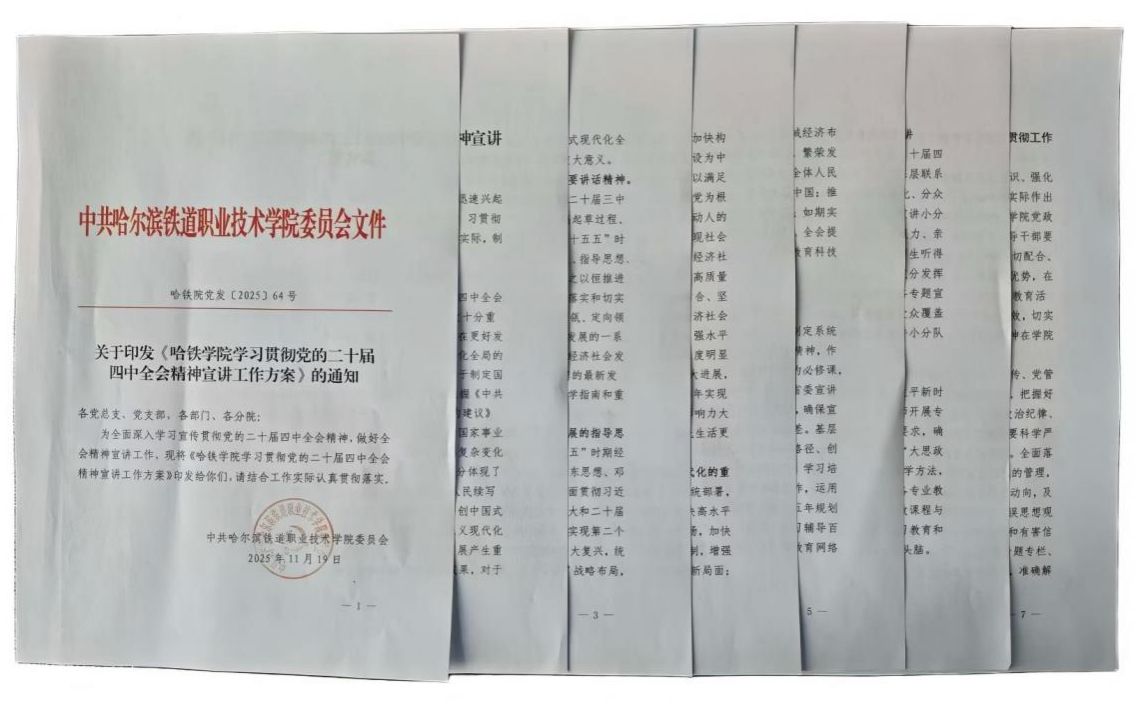 中共哈尔滨铁道职业技术学院委员会文件
哈铁院党发〔2025〕64号
关于印发《哈铁学院学习贯彻党的二十届
四中全会精神宣讲工作方案》的通知
各党总支、党支部、各部门、各分院:
为全面深入学习宣传贯彻党的二十届四中全会精神,做好全
会精神宣讲工作,现将《哈铁学院学习贯彻党的二十届四中全会
精神宣讲工作方案》印发给你们,请结合工作实际认真贯彻落实。
中共哈尔滨铁道职业技术学院委员会
2025年11月19日
—1—
神宣讲
迅速兴起
习贯彻
实际,制
四中全会
十分重
在更好发
化全局的
于制定国
握《中共
建议》
国家事业
复杂变化
分体现了
人民续写
创中国式
义现代化
展产生重
果,对于
式现代化全
大意义。
要讲话精神。
二十届三中
起草过程、
十五五”时
、指导思想、
之以恒推进
落实和切实
低、定向领
发展的一系
经济社会发
的最新发
学指南和重
展的指导思
五”时期经
东思想、邓
面贯彻习近
大和二十届
实现第二个
大复兴,统
战略布局,
—3—
加快构
设为中
以满足
党为根
动人的
现社会
经济社
高质量
合、坚
济社会
强水平
度明显
大进展,
年实现
响力大
生活更
代化的重
统部署,
快高水平
场,加快
制,增强
新局面;
域经济布
繁荣发
全体人民
中国;推
如期实
全会提
教育科技
制定系统
精神,作
为必修课,
省委宣讲
,确保宣
差。基层
路径、创
学习培
作,运用
五年规划
习辅导百
教育网络
5—
讲
十届四
层联系
化、分众
宣讲小分
力、亲
生听得
分发挥
专题宣
众覆盖
小分队
平新时
师开展专
要求,确
“大思政
学方法,
各专业教
政课程与
习教育和
头脑。
贯彻工作
识、强化
实际作出
学院党政
导干部要
切配合、
优势,在
教育活
效,切实
神在学院
传、党管
把握好
政治纪律、
要科学严
。全面落
的管理,
动向,及
误思想观
和有害信
题专栏、
,准确解
—7—